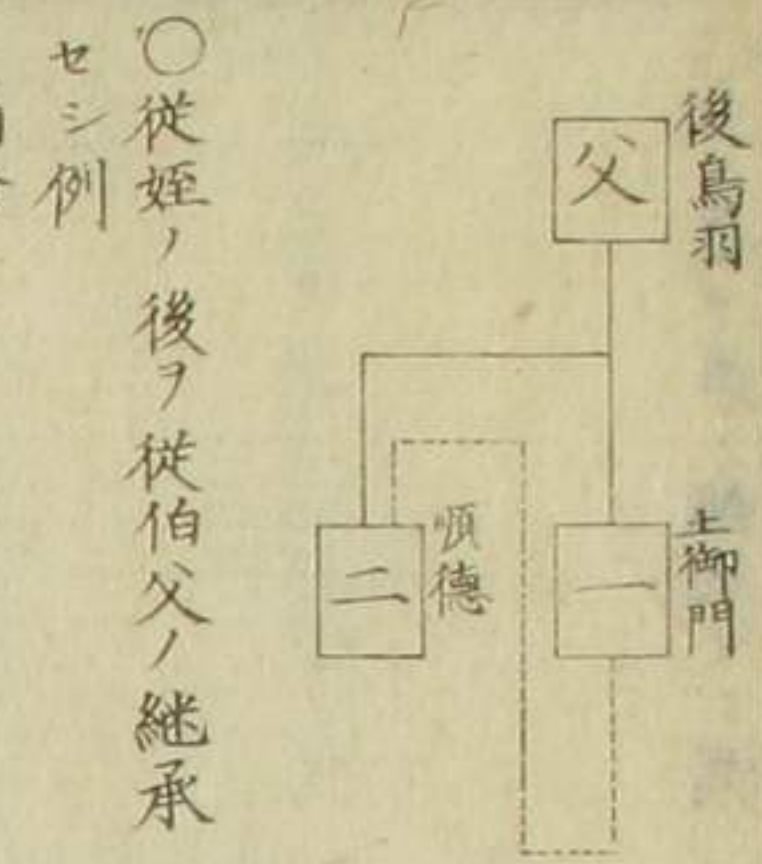 後鳥羽
父
土御門
一
順德
二
○従姪ノ後ヲ従伯父ノ継承
セシ例